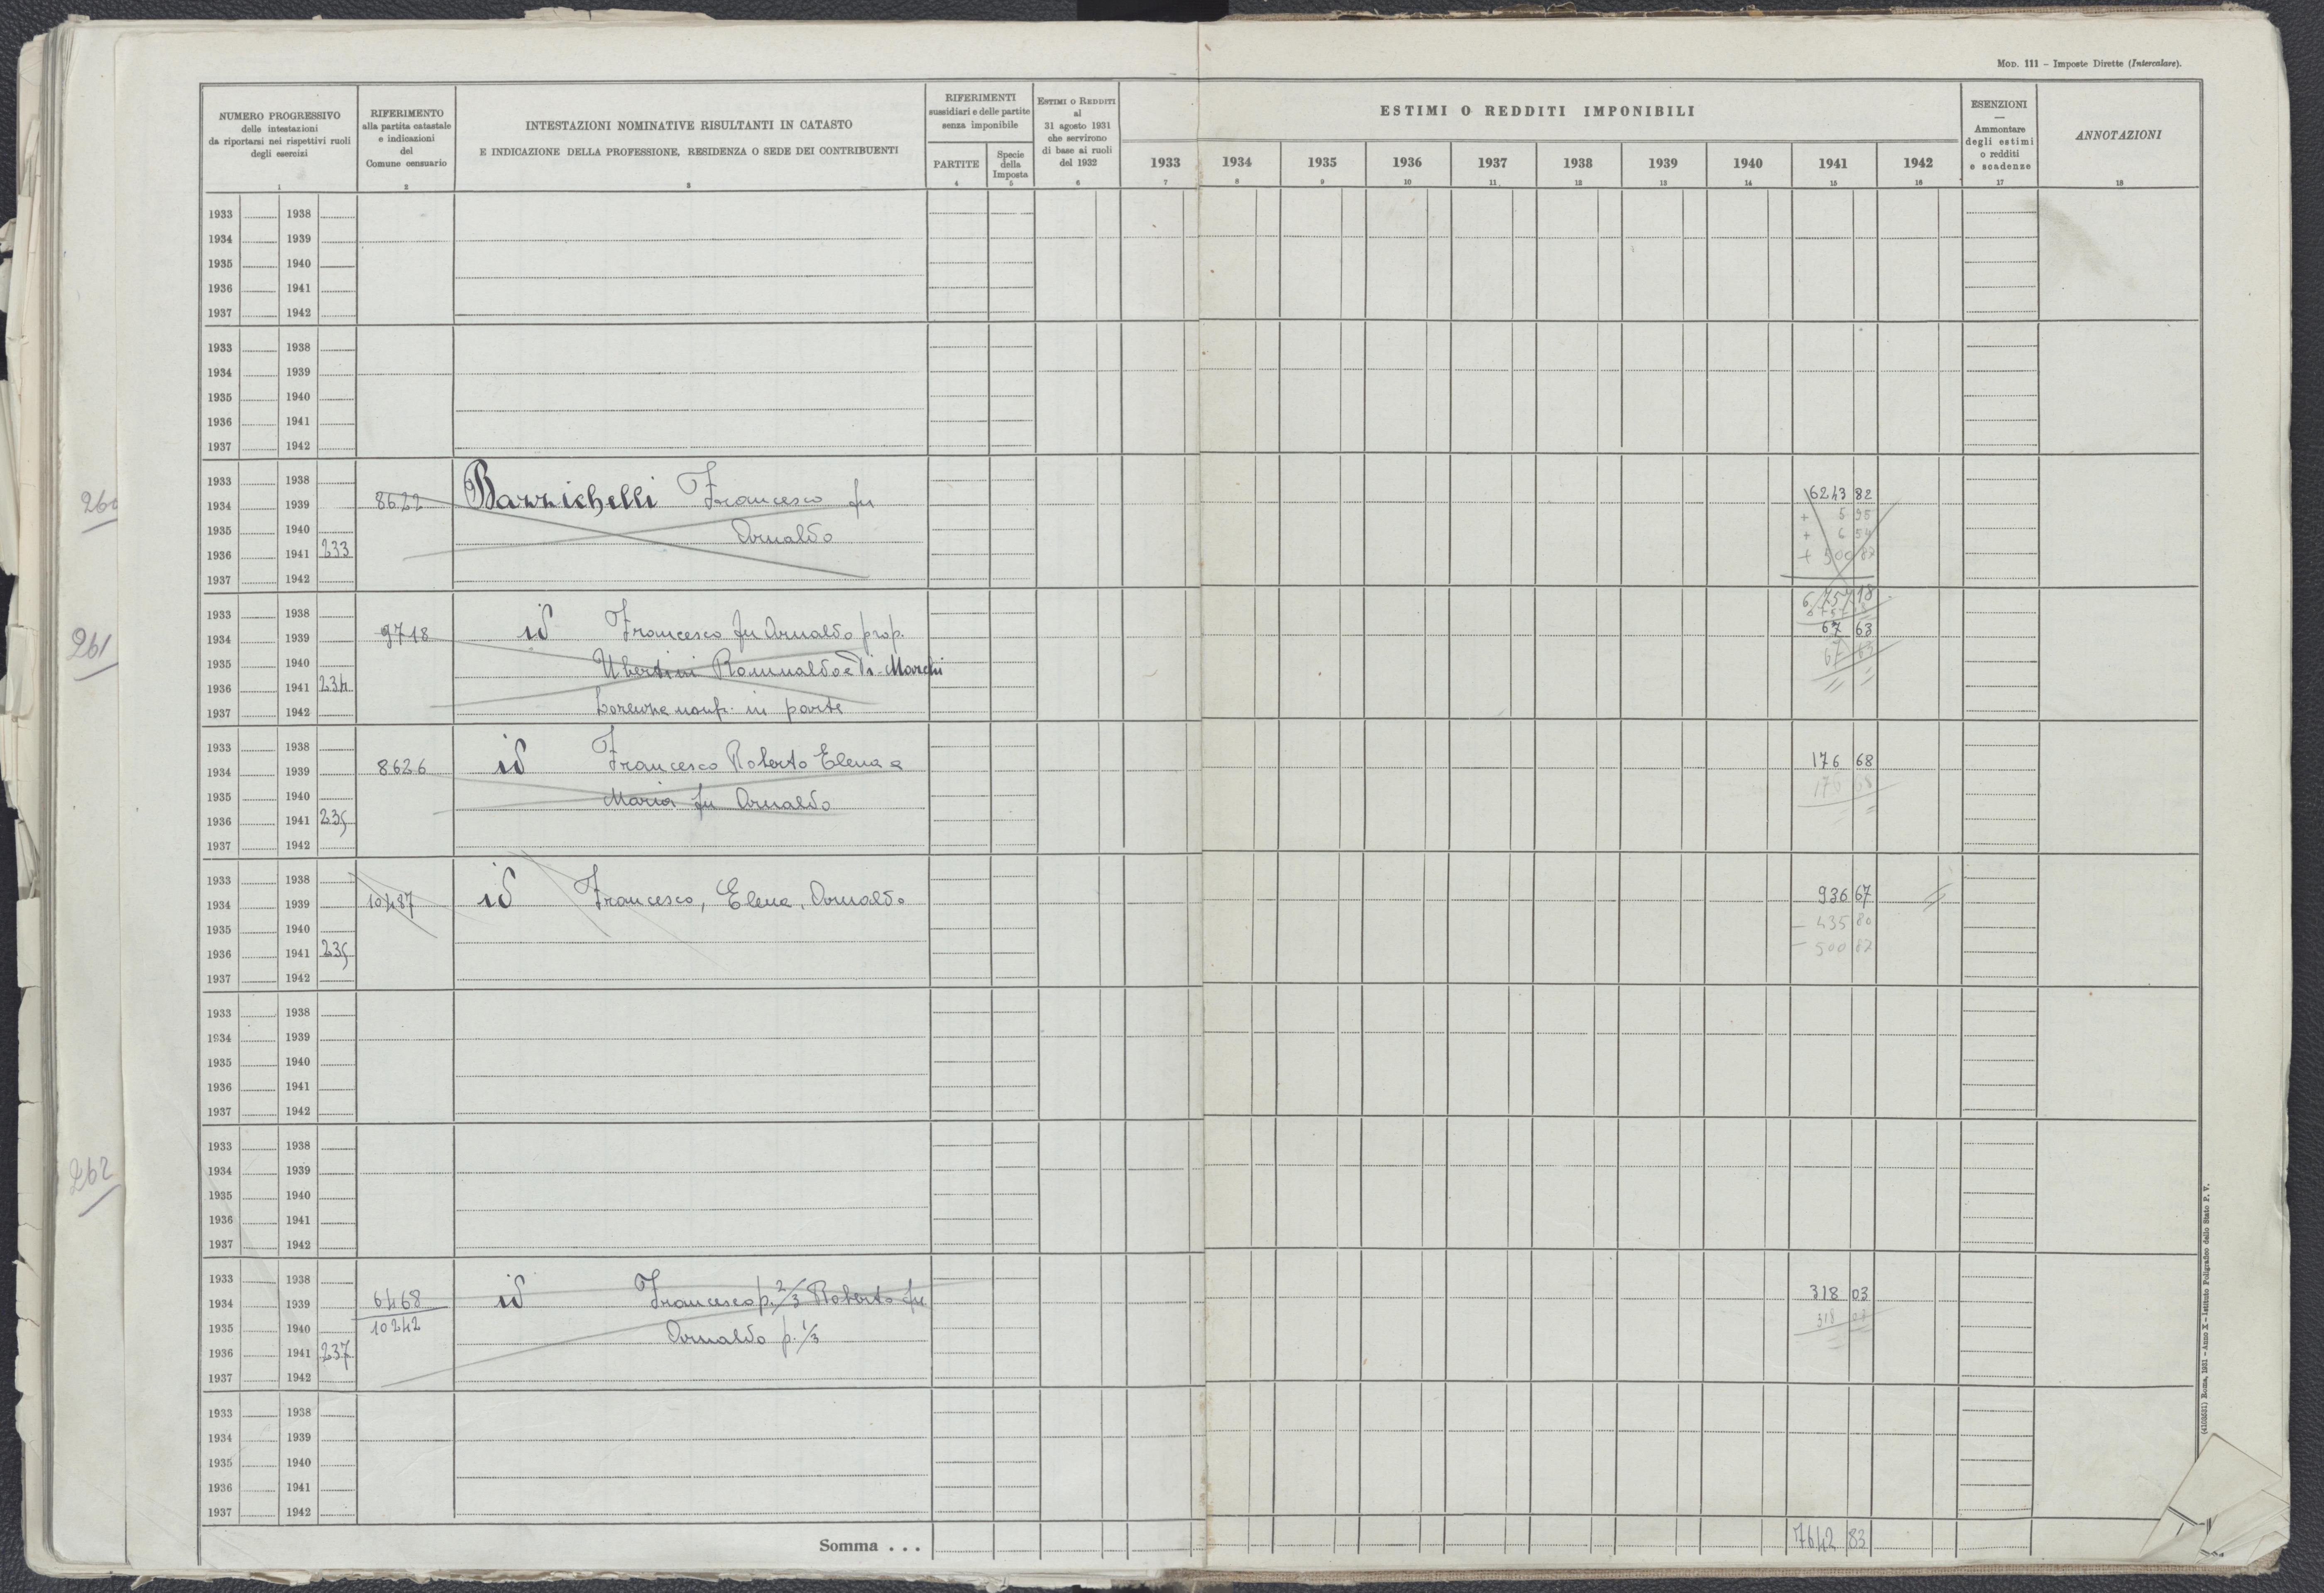 MOD. 111 – Imposte Dirette (Intercalare).
NUMERO PROGRESSIVO
delle intestazioni
da riportarsi nei rispettivi ruoli
degli esercizi
1
RIFERIMENTO
alla partita catastale
e indicazioni
del
Comune censuario
2
INTESTAZIONI NOMINATIVE RISULTANTI IN CATASTO
E INDICAZIONE DELLA PROFESSIONE, RESIDENZA O SEDE DEI CONTRIBUENTI
3
RIFERIMENTI
sussidiari e delle partite
senza imponibile
PARTITE
4
Specie
della
Imposta
5
ESTIMI O REDDITI
al
31 agosto 1931
che servirono
di base ai ruoli
del 1932
6
ESTIMI O REDDITI IMPONIBILI
1933 1934 1935 1936 1937 1938 1939 1940 1941 1942
7 8 9 10 11 12 13 14 15 16
ESENZIONI
—
Ammontare
degli estimi
o redditi
e scadenze
17
ANNOTAZIONI
18
1933 1938
1934 1939
1935 1940
1936 1941
1937 1942
1933 1938
1934 1939
1935 1940
1936 1941
1937 1942
260
1933 1938
1934 1939 8622 Barzichelli Francesco fu 6243 82
1935 1940 Arnaldo + 5 95
+ 6 54
1936 1941 233 + 500 87
1937 1942
6757 18
261
1933 1938
1934 1939 9718 id Francesco fu Arnaldo prop. 67 63
1935 1940 Ubertini Romualdo e Di Marchi 67 63
1936 1941 234
1937 1942 Lorenza usufr. in parte
1933 1938
1934 1939 8626 id Francesco Roberto Elena e 176 68
1935 1940 Maria fu Arnaldo 176 68
1936 1941 235
1937 1942
1933 1938
1934 1939 10487 id Francesco, Elena, Arnaldo 936 67
1935 1940 – 435 80
1936 1941 235 – 500 87
1937 1942
1933 1938
1934 1939
1935 1940
1936 1941
1937 1942
262
1933 1938
1934 1939
1935 1940
1936 1941
1937 1942
1933 1938
1934 1939 6468 id Francesco p. 2/3 Roberto fu 318 03
1935 1940 10242 Arnaldo p. 1/3 318 03
1936 1941 237
1937 1942
1933 1938
1934 1939
1935 1940
1936 1941
1937 1942
Somma . . . 7642 83
(4103631) Roma, 1931 – Anno X – Istituto Poligrafico dello Stato P. V.